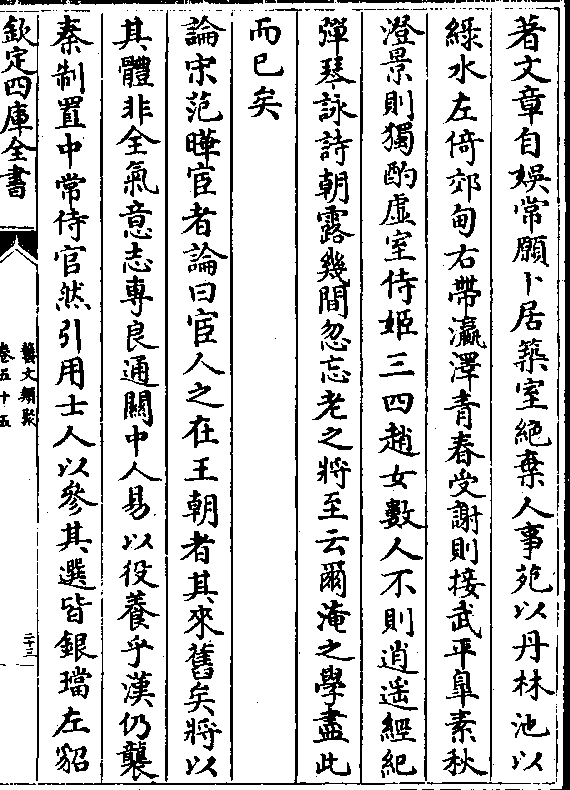 著文章自娯常願卜居築室絶棄人事苑以丹林池以
緑水左倚郊甸右帶瀛澤青春受謝則接武平皐素秋
澄景則獨酌虚室侍姬三四趙女數人不則逍遥經紀
彈琴詠詩朝露幾間忽忘老之將至云爾淹之學盡此
而已矣
論宋范曄宦者論曰宦人之在王朝者其來舊矣將以
其體非全氣意志專良通關中人易以役養乎漢仍襲
秦制置中常侍官然引用士人以參其選皆銀璫左貂
欽定四庫全書
藝文類聚
卷五十五
二十三